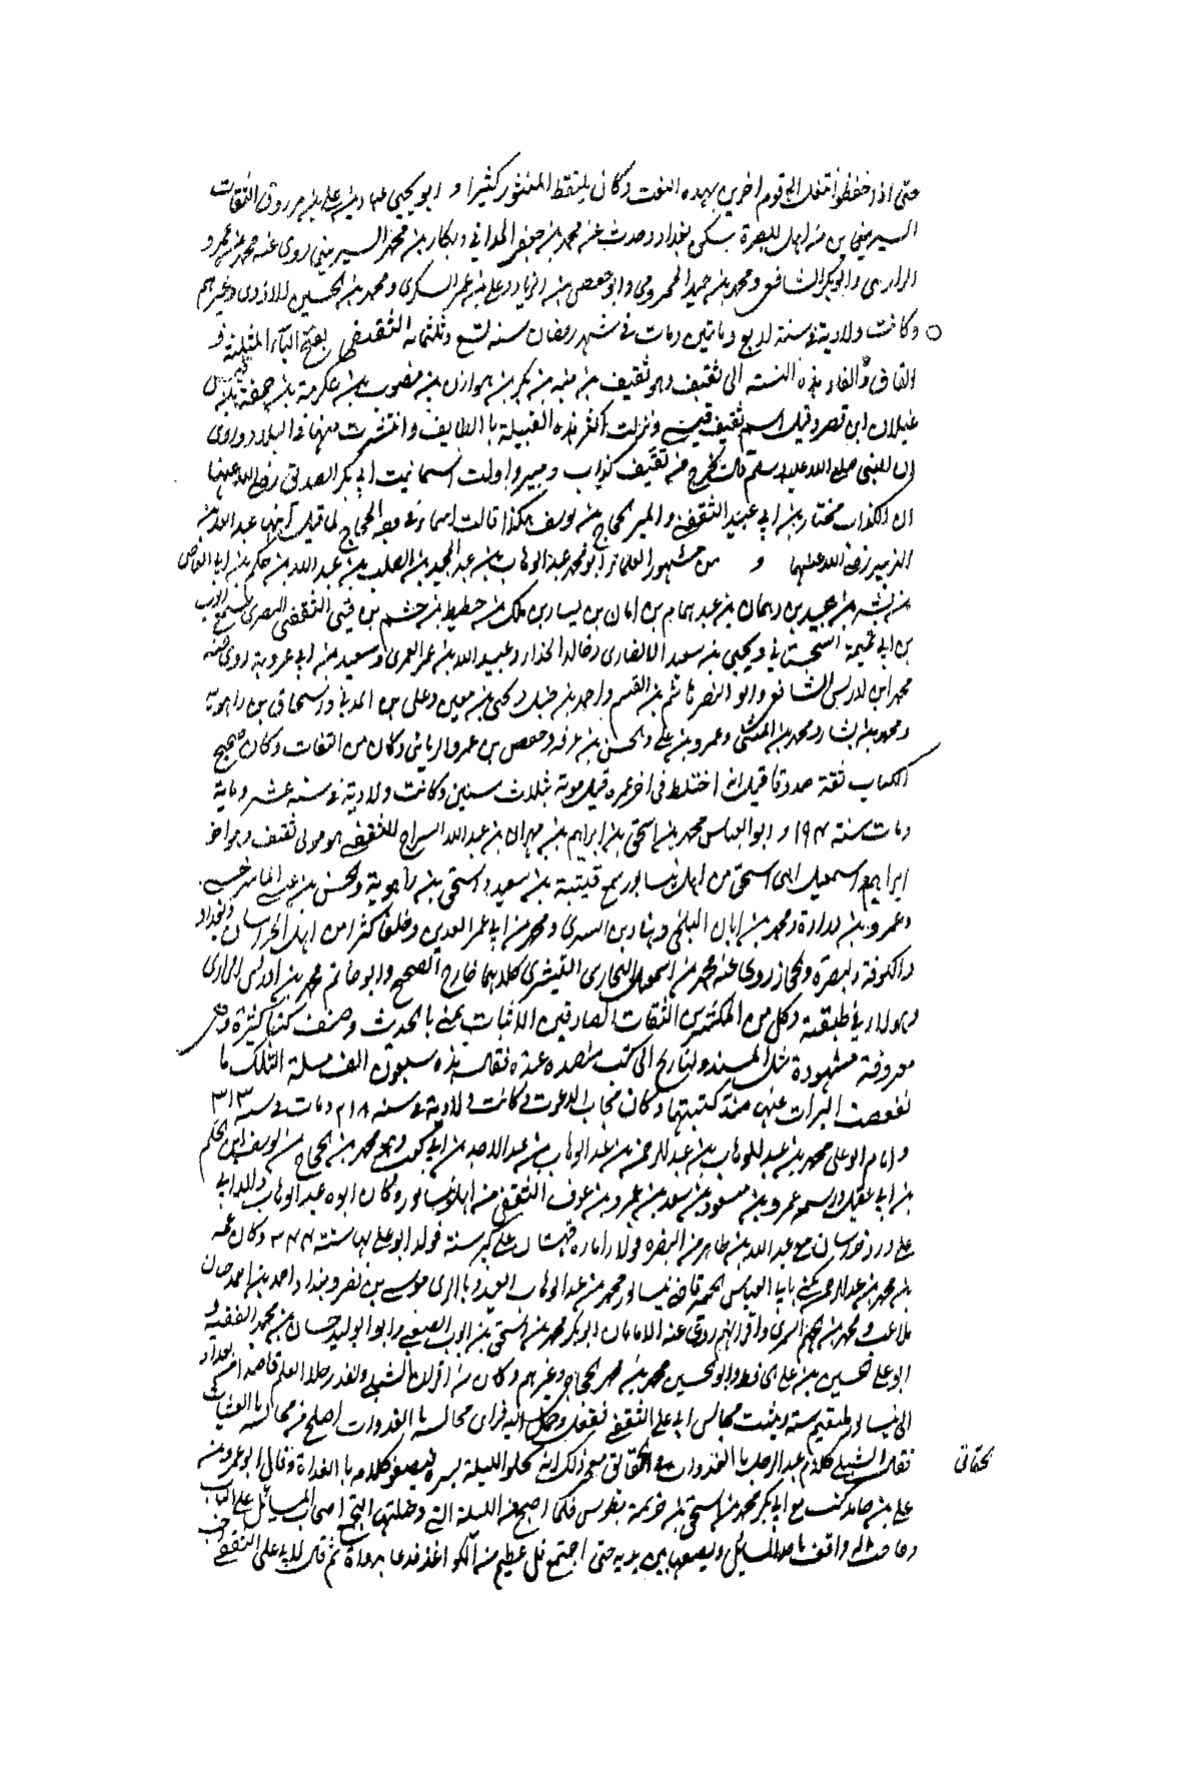 حتى اذا حفظوا انتقل الى قوم اخرين بهذه النعت وكان يلتقط المنثور كثيرا و ابو يحيى عباد بن علي بن مرزوق الثقات
السيريني من اهل البصرة سكن بغداد وحدث عن محمد بن جعفر المدائني وبكار بن محمد السيريني روى عنه محمد بن عمرو
الرازى وابو بكر الشافعي ومحمد بن حميد المخرومي وابو حفص بن الزيات وعلي بن عمر السكرى ومحمد بن الحسين الازدى وغيرهم
وكانت ولادته في سنة اربع ومائتين ومات في شهر رمضان سنة تسع وثلثمائه الثقفي بفتح الثاء المثلثة و
القاف والفاء هذه النسبة الى ثقيف وهو ثقيف بن منبه بن بكر بن هوازن بن منصور بن عكرمة بن خصفة بن قيس
غيلان ابن مضر وقيل اسم ثقيف قيس ونزلت اكثر هذه القبيلة با الطايف وانتشرت منها في البلاد وروى
ان النبي صلى الله عليه وسلم قال يخرج من ثقيف كذاب ومبير واولت اسما بنت ابي بكر الصديق رضي الله عنها
ان الكذاب مختار بن ابي عبيد الثقفي والمبير الحجاج بن يوسف هكذا قالت اسما في وجه الحجاج لما قتل ابنها عبد الله بن
الزبير رضي الله عنهما و من مشهور العلماء ابو محمد عبد الوهاب بن عبد المجيد بن الصلت بن عبد الله بن حكم بن ابي العاص
بن بشر بن عبيد بن دهمان بن عبد همام بن ابان بن يسار بن ملك بن حطيط بن جشم بن قسي الثقفي البصرى سمع ايوب
بن ابي تميمة السختياني ويحيى بن سعيد الانصارى وخالد الحذاء وعبيد الله بن عمر العمرى وسعيد بن ابي عروبة روى عنه
محمد ابن ادريس الشافعي وابو النضر هاشم بن القسم واحمد بن حنبل ويحيى بن معين وعلى بن المديني واسحاق بن راهويه
ومحمد بن بشار ومحمد بن المثنى وعمرو بن علي والحسن بن عرفه وحفص بن عمرو الربالي وكان من الثقات وكان صحيح
الكتاب ثقة صدوقا قيل انه اختلط في اخر عمره قبل موته بثلاث سنين وكانت ولادته في سنة عشر ومائة
ومات سنة ١٩٤ و ابو العباس محمد بن اسحق بن ابراهيم بن مهران بن عبد الله السراج الثقفي هو مولى ثقيف وهو اخو
ابراهيم واسمعيل ابني اسحق من اهل نيسابور سمع قتيبة بن سعيد واسحق بن راهوية والحسن بن عيسى الماسرجسي
وعمرو بن زرارة ومحمد بن ابان البلخي وهناد بن السرى ومحمد بن ابي عمر العدني وخلقا كثرا من اهل خراسان وبغداد
والكوفة والبصره والحجاز روى عنه محمد بن اسمعيل البخارى القشيرى كلاهما خارج الصحيح وابو حاتم محمد بن ادريس الرازى
وهولاء في طبقته وكل من المكثرين الثقات الصادقين الاثبات يعني بالحديث وصنف كتبا كثيرة وهي
معروفة مشهودة مثل المسند والتاريخ الى كتب منضده عنده فقال هذه سبعون الف مسلة لملك ما
نفضت التراب عنها منذ كتبتها وكان مجاب الدعوت وكانت ولادته في سنة ٢١٨ ومات في سنة ٣١٣
وامام ابو على محمد بن عبد الوهاب بن عبد الرحمن بن عبد الوهاب بن عبد الاحد بن ابي محمد بن الحجاج بن يوسف ابن الحكم
بن ابي عقيل واسمه عمرو بن مسعود بن سعد بن عمرو بن عوف الثقفي من اهل نيسابور وكان ابوه عبد الوهاب والد ابي
علي ورد خراسان مع عبد الله بن طاهر من البصره فولاه اماره قهستان على كبر سنه فولد ابو على بها سنة ٢٤٤ وكان عمه
بن محمد بن عبد الرحمن يكنى بابا العباس الحجمة قاضي نيسابور محمد بن عبد الوهاب العبدى وبالرى موسى بن نصر وببغداد احمد بن احمد حيان
ملاعب ومحمد بن الجهم السمرى واقرانهم روى عنه الامامان ابو بكر محمد بن اسحق بن ايوب الصبغي وابو الوليد حسان بن محمد الفقيه و
ابو على الحسين بن على الحافظ وابو الحسين محمد بن محمد الحجاجي وغيرهم وكان من اقران الشبلي ولقد رحل العلم قاصدا من بغداد
الى نيسابور ليقيم سنة ويثبت مجالس ابي علي الثقفي ففعل وحمل اليه فراى مجالسه با الغدوات اصلح من مجالسه با العشيات
فقال الشبلي كلام عبد الرجل با الغدوات مع الحقائق مع ذلك انه يخلو الليلة بسره فيصفو كلامه با الغداة وقال ابو عمرو بن
على بن حامد كنت مع ابي بكر محمد بن اسحق بن خزيمة بطوس فلما اصبح من الليلة التي دخلتها اجتمع اصحاب المسائل على الباب
وصاحب له واقف ياخذ المسائل ويضعها بين يديه حتى اجتمع تل عظيم من الكواغذ فدعا بدواة ثم قال لابي علي الثقفي اجب
بحقائق